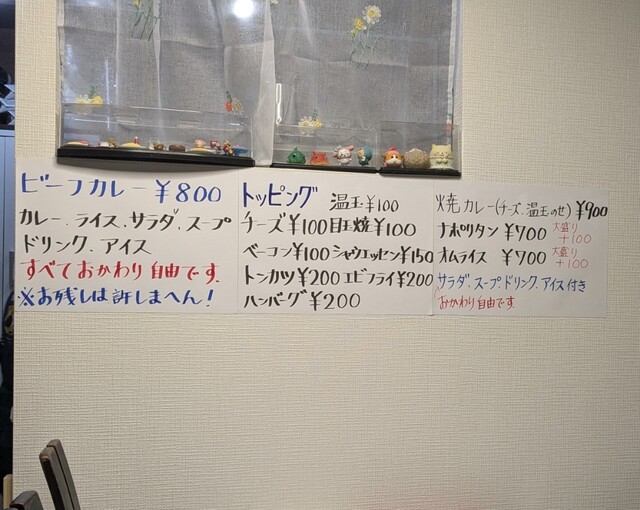 ビーフカレー ¥800
カレー、ライス、サラダ、スープ
ドリンク、アイス
すべておかわり自由です。
※お残しは許しまへん!
トッピング 温玉¥100
チーズ¥100 目玉焼¥100
ベーコン¥100 シャウエッセン¥150
トンカツ¥200 エビフライ¥200
ハンバーグ¥200
焼カレー(チーズ、温玉のせ) ¥900
ナポリタン ¥700 大盛り+100
オムライス ¥700 大盛り+100
サラダ、スープ、ドリンク、アイス付き
おかわり自由です。